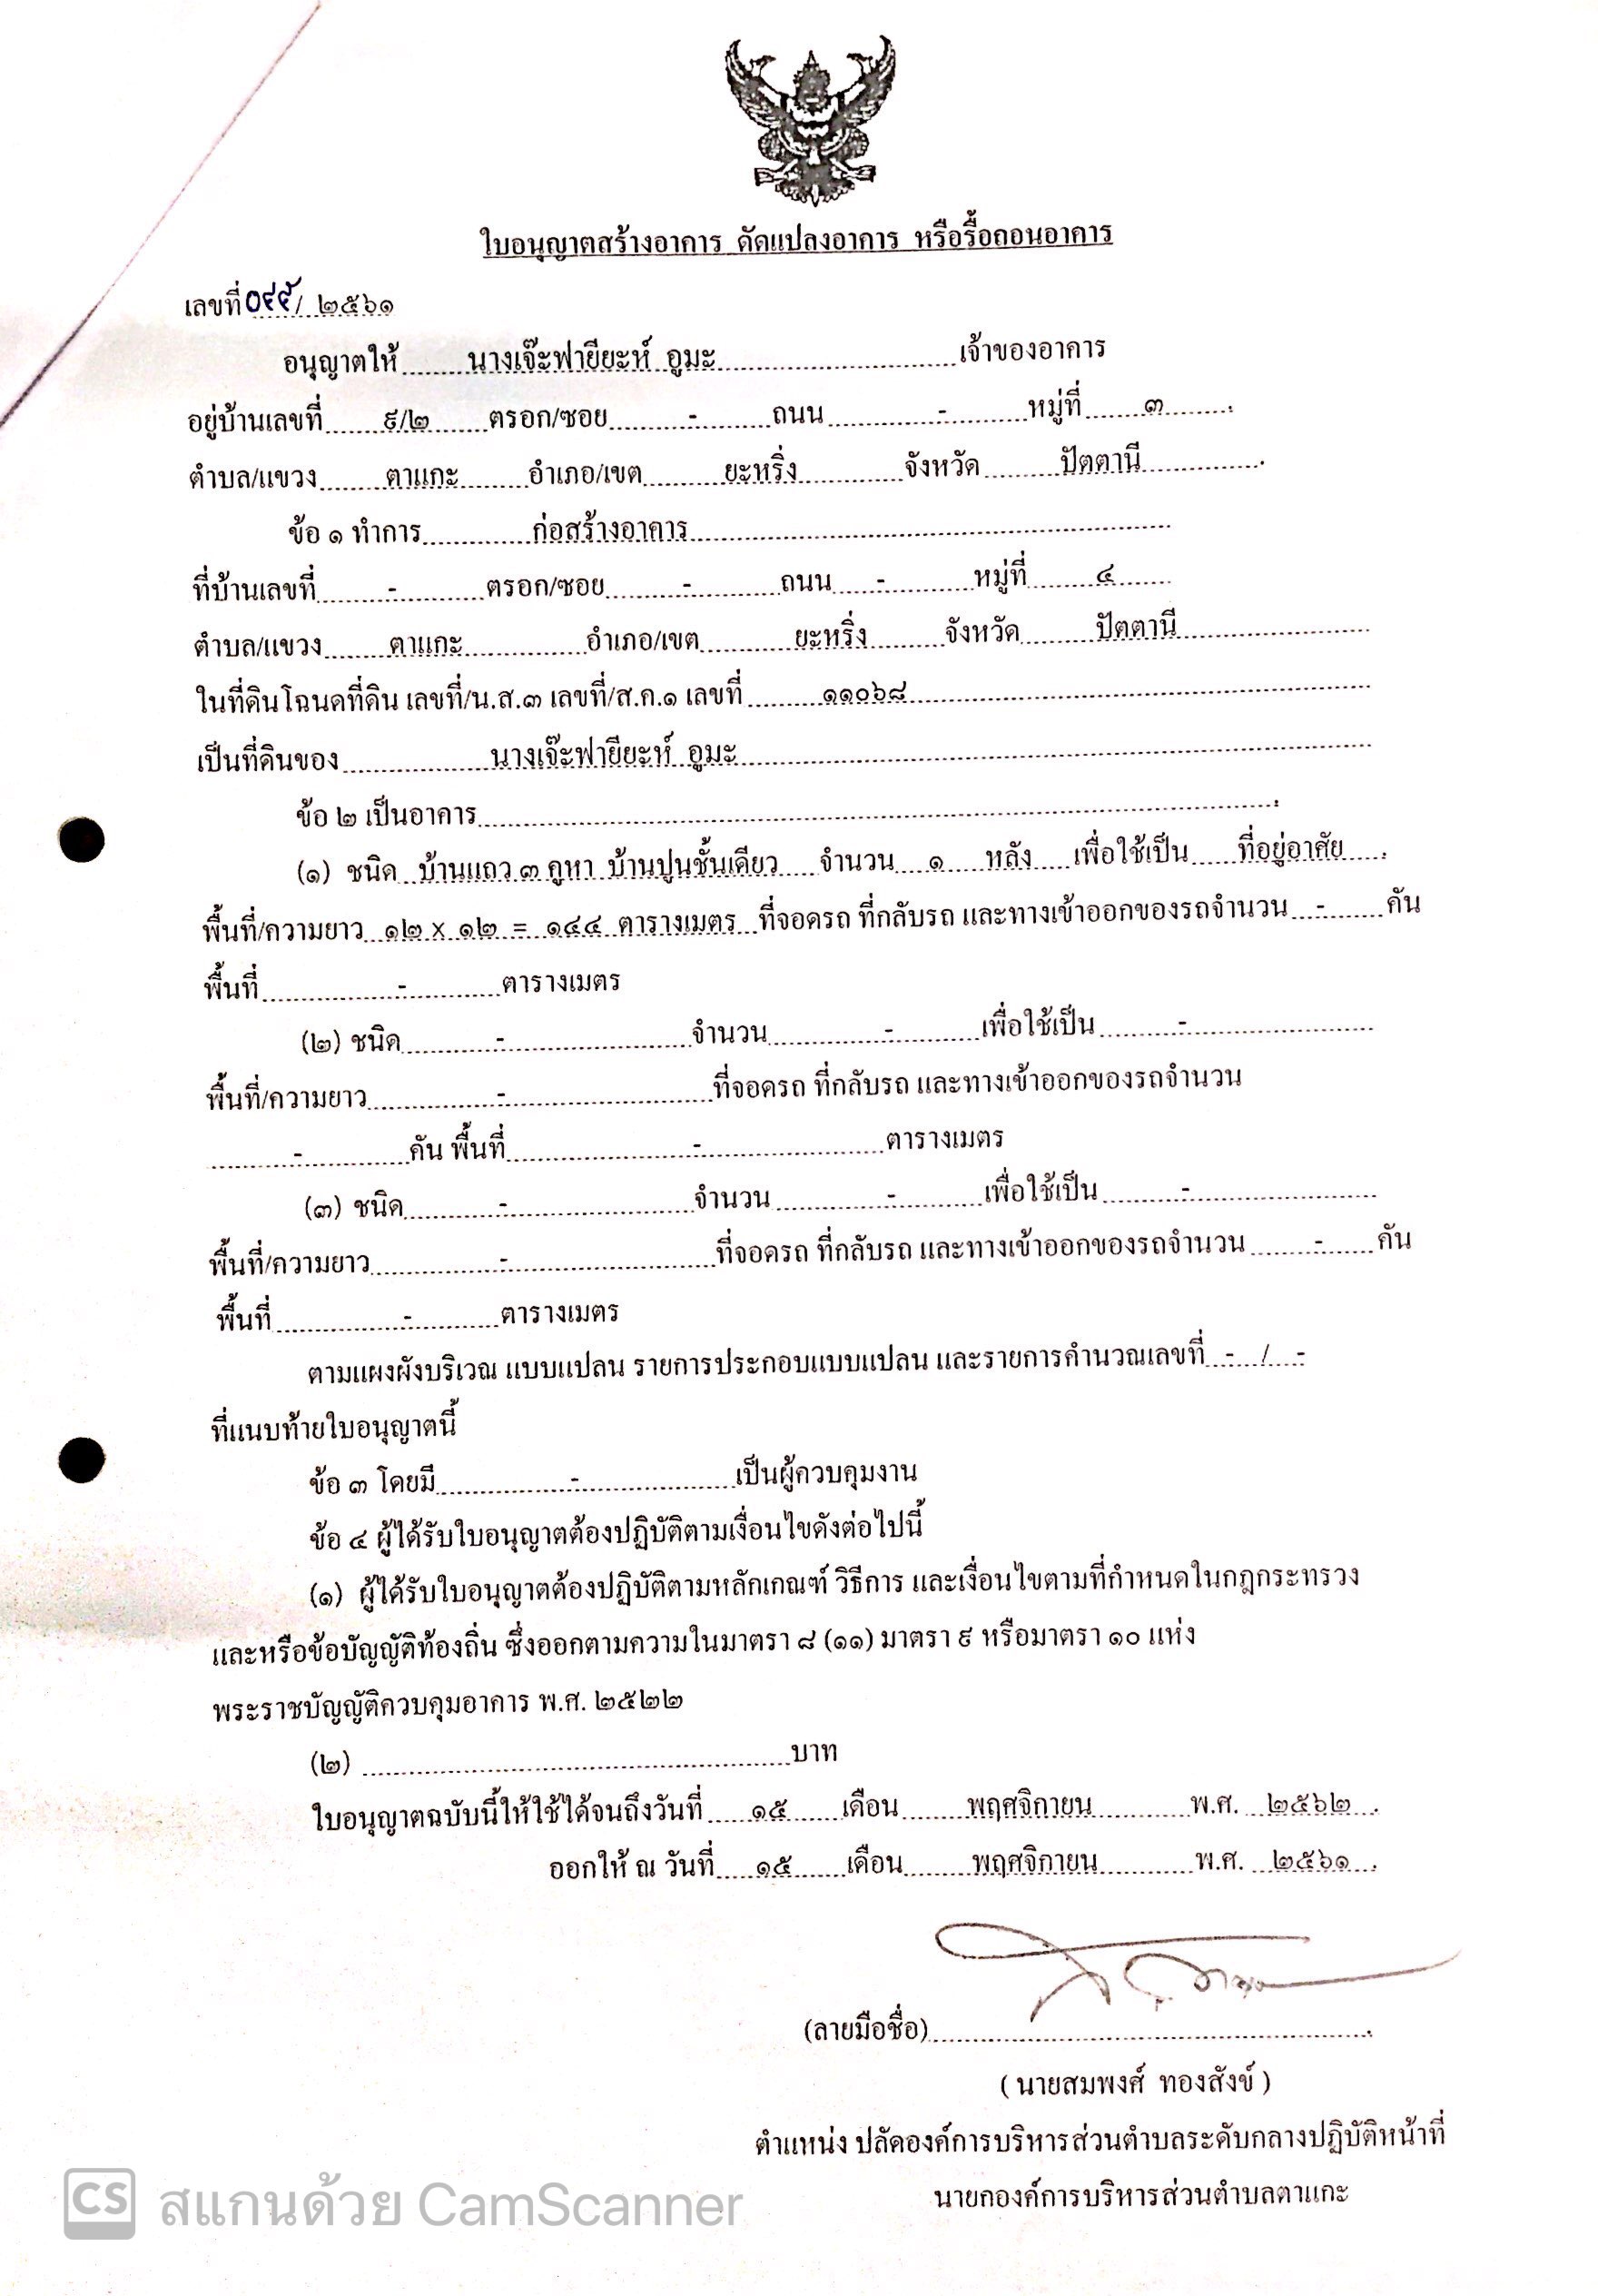 ใบอนุญาตสร้างอาคาร ดัดแปลงอาคาร หรือรื้อถอนอาคาร
เลขที่ ๐๙๙/ ๒๕๖๑
อนุญาตให้ นางเจ๊ะฟายียะห์ อูมะ เจ้าของอาคาร
อยู่บ้านเลขที่ ๙/๒ ตรอก/ซอย - ถนน - หมู่ที่ ๓
ตำบล/แขวง ตาแกะ อำเภอ/เขต ยะหริ่ง จังหวัด ปัตตานี
ข้อ ๑ ทำการ ก่อสร้างอาคาร
ที่บ้านเลขที่ - ตรอก/ซอย - ถนน - หมู่ที่ ๔
ตำบล/แขวง ตาแกะ อำเภอ/เขต ยะหริ่ง จังหวัด ปัตตานี
ในที่ดินโฉนดที่ดิน เลขที่/น.ส.๓ เลขที่/ส.ค.๑ เลขที่ ๑๑๐๖๘
เป็นที่ดินของ นางเจ๊ะฟายียะห์ อูมะ
ข้อ ๒ เป็นอาคาร
(๑) ชนิด บ้านแถว ๓ คูหา บ้านปูนชั้นเดียว จำนวน ๑ หลัง เพื่อใช้เป็น ที่อยู่อาศัย
พื้นที่/ความยาว ๑๒ x ๑๒ = ๑๔๔ ตารางเมตร ที่จอดรถ ที่กลับรถ และทางเข้าออกของรถจำนวน - คัน
พื้นที่ - ตารางเมตร
(๒) ชนิด - จำนวน - เพื่อใช้เป็น -
พื้นที่/ความยาว - ที่จอดรถ ที่กลับรถ และทางเข้าออกของรถจำนวน
- คัน พื้นที่ - ตารางเมตร
(๓) ชนิด - จำนวน - เพื่อใช้เป็น -
พื้นที่/ความยาว - ที่จอดรถ ที่กลับรถ และทางเข้าออกของรถจำนวน - คัน
พื้นที่ - ตารางเมตร
ตามแผงผังบริเวณ แบบแปลน รายการประกอบแบบแปลน และรายการคำนวณเลขที่ - / -
ที่แนบท้ายใบอนุญาตนี้
ข้อ ๓ โดยมี - เป็นผู้ควบคุมงาน
ข้อ ๔ ผู้ได้รับใบอนุญาตต้องปฏิบัติตามเงื่อนไขดังต่อไปนี้
(๑) ผู้ได้รับใบอนุญาตต้องปฏิบัติตามหลักเกณฑ์ วิธีการ และเงื่อนไขตามที่กำหนดในกฎกระทรวง
และหรือข้อบัญญัติท้องถิ่น ซึ่งออกตามความในมาตรา ๘ (๑๑) มาตรา ๙ หรือมาตรา ๑๐ แห่ง
พระราชบัญญัติควบคุมอาคาร พ.ศ. ๒๕๒๒
(๒) บาท
ใบอนุญาตฉบับนี้ให้ใช้ได้จนถึงวันที่ ๑๕ เดือน พฤศจิกายน พ.ศ. ๒๕๖๒
ออกให้ ณ วันที่ ๑๕ เดือน พฤศจิกายน พ.ศ. ๒๕๖๑
(ลายมือชื่อ)
( นายสมพงศ์ ทองสังข์ )
ตำแหน่ง ปลัดองค์การบริหารส่วนตำบลระดับกลางปฏิบัติหน้าที่
นายกองค์การบริหารส่วนตำบลตาแกะ
CS สแกนด้วย CamScanner